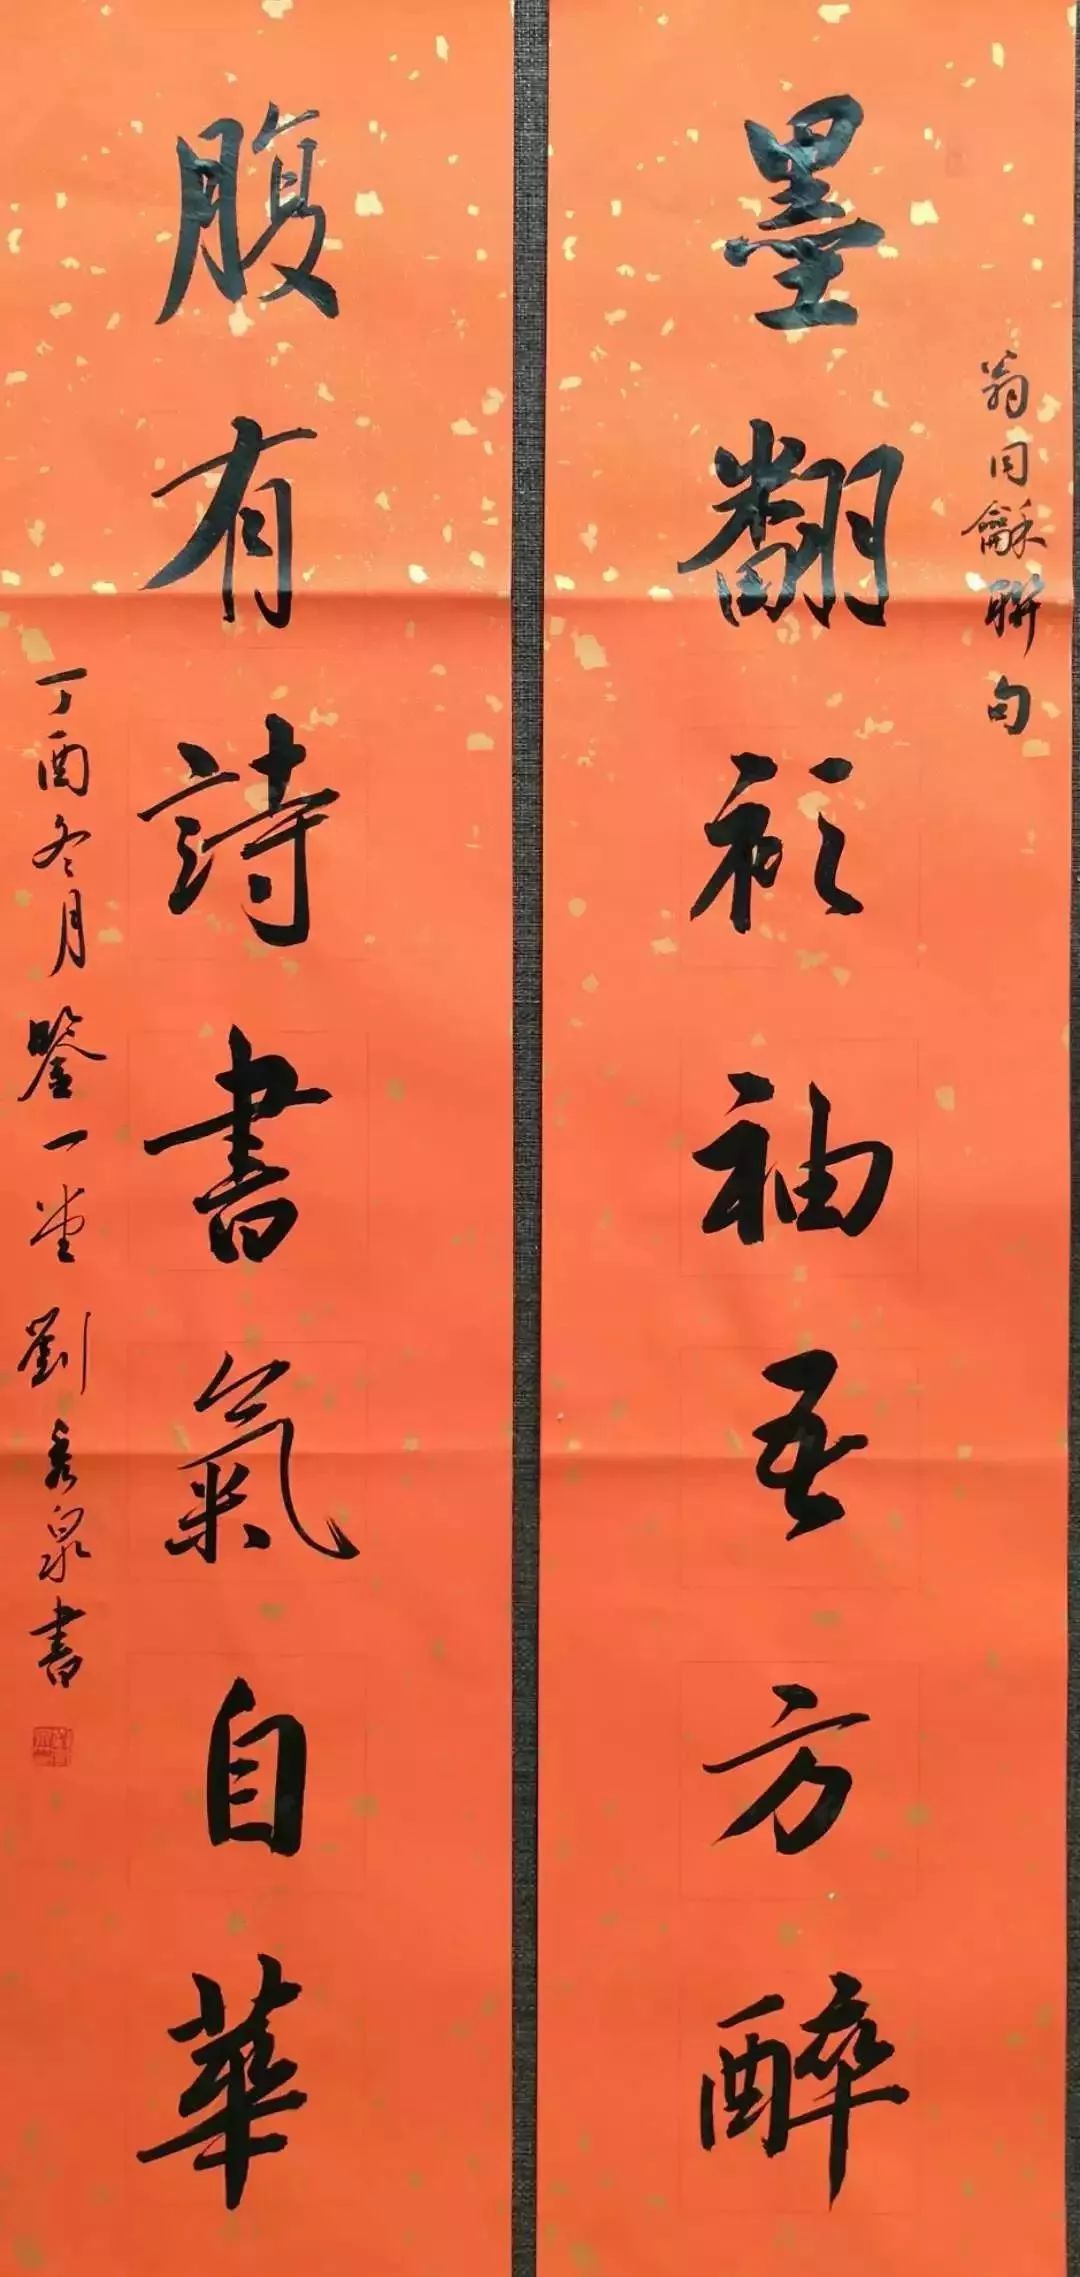 翁同龢聯句
墨翻衫袖吾方醉
腹有詩書氣自華
丁酉冬月鑒一堂劉秀泉書